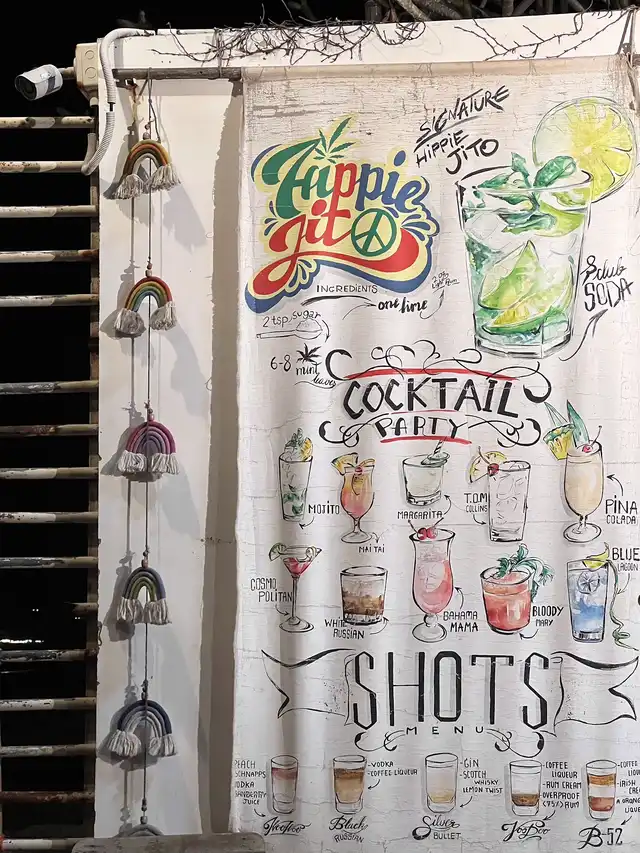 SIGNATURE
HIPPIE
JITO
Hippie
Jito
INGREDIENTS
one lime
2 tsp sugar
6-8 mint
leaves
& club
SODA
COCKTAIL
PARTY
MOJITO
MAI TAI
MARGARITA
TOM
COLLINS
PINA
COLADA
COSMO
POLITAN
WHITE
RUSSIAN
BAHAMA
MAMA
BLOODY
MARY
BLUE
LAGOON
SHOTS
MENU
PEACH
SCHNAPPS
VODKA
JUICE
VooDoo
-VODKA
-COFFEE LIQUEUR
Black
RUSSIAN
-GIN
SCOTCH
WHISKY
LEMON TWIST
Silver
BULLET
-COFFEE
LIQUEUR
-RUM CREAM
OVERPROOF
(75%) RUM
-COFFEE
LIQU
-IRISH
CRE
ORANG
LIQUE
B-52